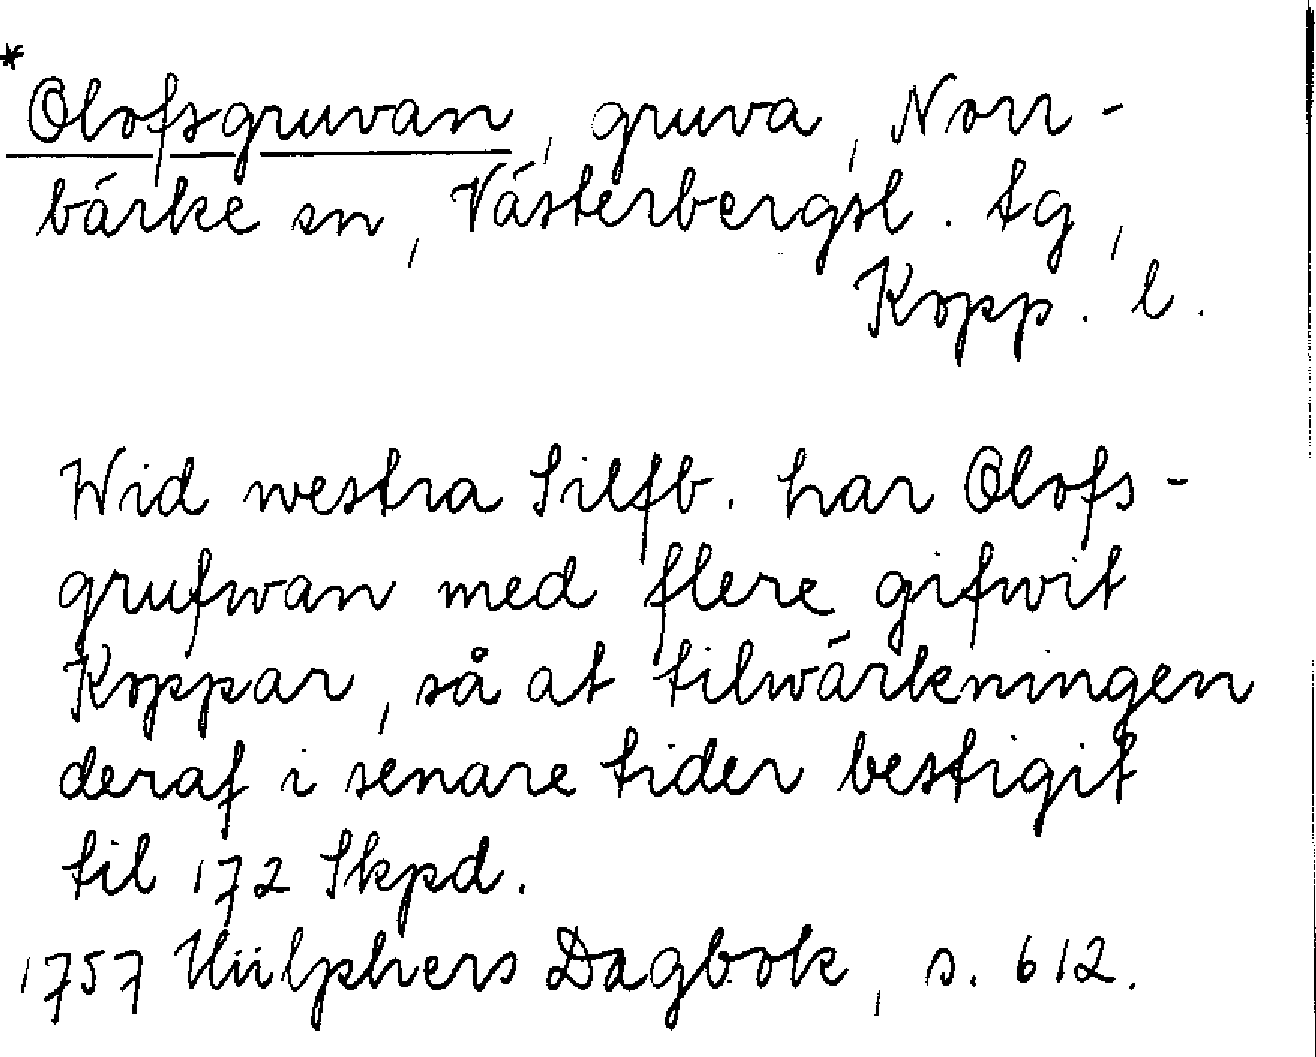 *
Olofsgruvan, gruva, Norr-
bärke sn, Västerbergsl. tg,
Kopp. l.
Wid westra Silfb. har Olofs-
grufwan med flere gifwit
Koppar, så at tilwärkningen
deraf i senare tider bestigit
til 172 Skpd.
1757 Hülphers Dagbok, s. 612.